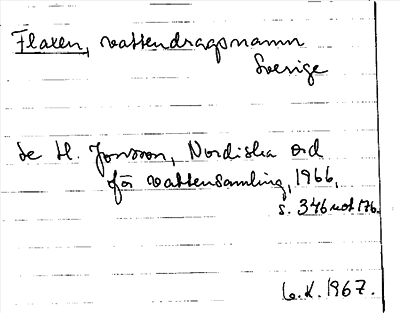 Flaxen, vattendragsnamn
Sverige
se H. Jonsson, Nordiska ord
för vattensamling, 1966,
s. 346 not 176.
1967.